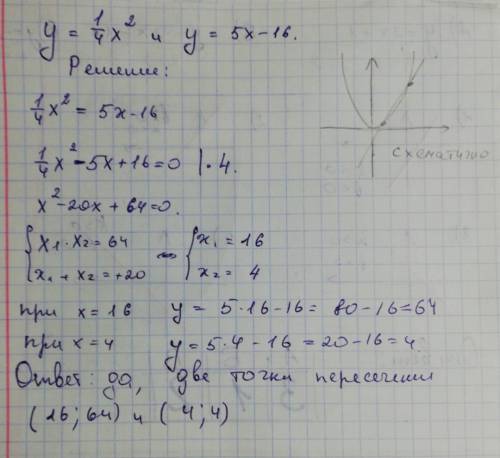 y = 1/4 x² и y = 5x-16.
Решение:
1/4 x² = 5x-16
1/4 x² - 5x + 16 = 0 | · 4.
x² - 20x + 64 = 0.
{ x₁ · x₂ = 64
{ x₁ + x₂ = +20
{ x₁ = 16
{ x₂ = 4
при x = 16 y = 5·16-16 = 80-16 = 64
при x = 4 y = 5·4-16 = 20-16 = 4
Ответ: да, две точки пересечения
(16; 64) и (4; 4)
схематично